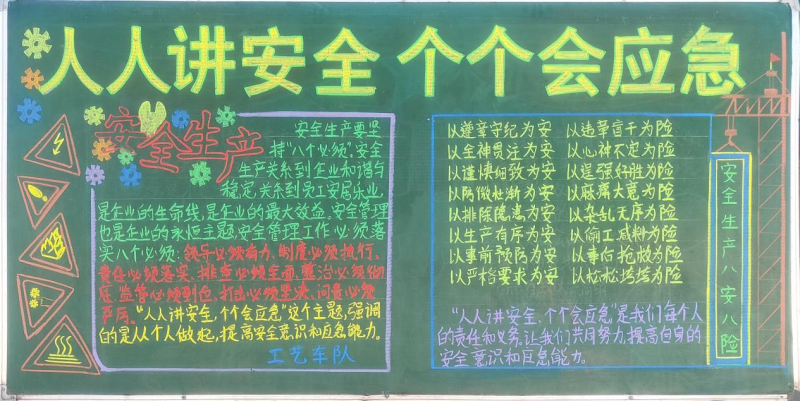 人人讲安全 个个会应急
安全生产
安全生产要坚
持“八个必须”,安全
生产关系到企业和谐与
稳定,关系到员工安居乐业,
是企业的生命线,是企业的最大效益,安全管理
也是企业的永恒主题,安全管理工作必须落
实八个必须:领导必须有力,制度必须执行,
责任必须落实,排查必须全面,整治必须彻
底,监管必须到位,打击必须坚决,问责必须
严厉。“人人讲安全,个个会应急”这个主题,强调
的是从个人做起,提高安全意识和应急能力。
工艺车队
以遵章守纪为安 以违章盲干为险
以全神贯注为安 以心神不定为险
以谨慎细致为安 以逞强好胜为险
以防微杜渐为安 以麻痹大意为险
以排除隐患为安 以杂乱无序为险
以生产有序为安 以偷工减料为险
以事前预防为安 以事后抢救为险
以严格要求为安 以松松垮垮为险
“人人讲安全,个个会应急”是我们每个人
的责任和义务,让我们共同努力,提高自身的
安全意识和应急能力。
安全生产八安八险